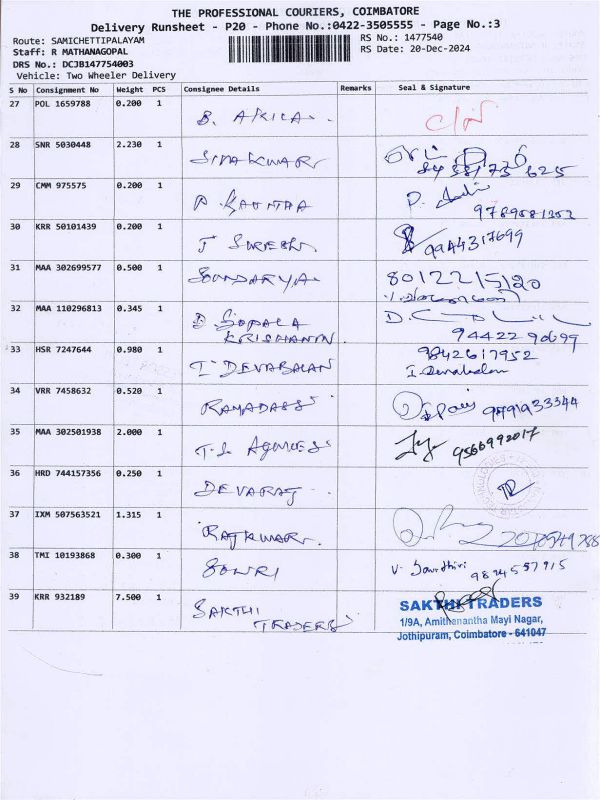 THE PROFESSIONAL COURIERS, COIMBATORE
Delivery Runsheet - P20 - Phone No.:0422-3505555 - Page No.:3
Route: SAMICHETTIPALAYAM
Staff: R MATHANAGOPAL
DRS No.: DCJB147754003
Vehicle: Two Wheeler Delivery
RS No.: 1477540
RS Date: 20-Dec-2024
S No Consignment No Weight PCS Consignee Details Remarks Seal & Signature
27 POL 1659788 0.200 1 B. AKILA
28 SNR 5030448 2.230 1 SIVAKUMAR
29 CMM 975575 0.200 1 P. KAVITHA
30 KRR 50101439 0.200 1 J SURESH 9944317699
31 MAA 302699577 0.500 1 SOUNDARYA 8012215120
32 MAA 110296813 0.345 1 D GOPALA
KRISHANNN 94422 90699
33 HSR 7247644 0.980 1 I DEVABALAN 9842617952
I. Devabalan
34 VRR 7458632 0.520 1 RAMADASS
35 MAA 302501938 2.000 1 9566992017
36 HRD 744157356 0.250 1 DEVARAJ
37 IXM 507563521 1.315 1 RAJKUMAR
38 TMI 10193868 0.300 1 SOWRI
39 KRR 932189 7.500 1 SAKTHI
TRADERS
SAKTHI TRADERS
1/9A, Amithanantha Mayi Nagar,
Jothipuram, Coimbatore - 641047